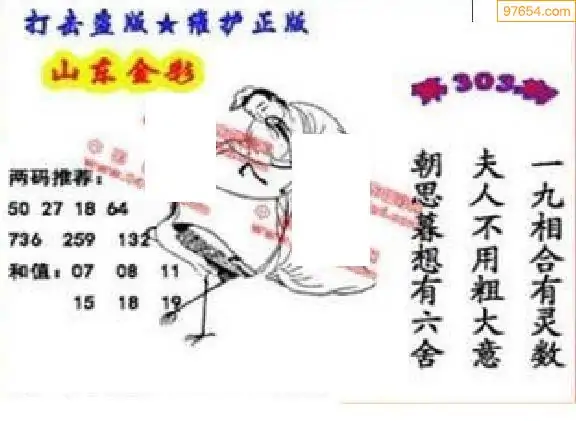 97654.com
打击盗版★维护正版
山东金彩
第303期
两码推荐：
50 27 18 64
736 259 132
和值：07 08 11
15 18 19
一九相合有灵数
夫人不用粗大意
朝思暮想有六舍